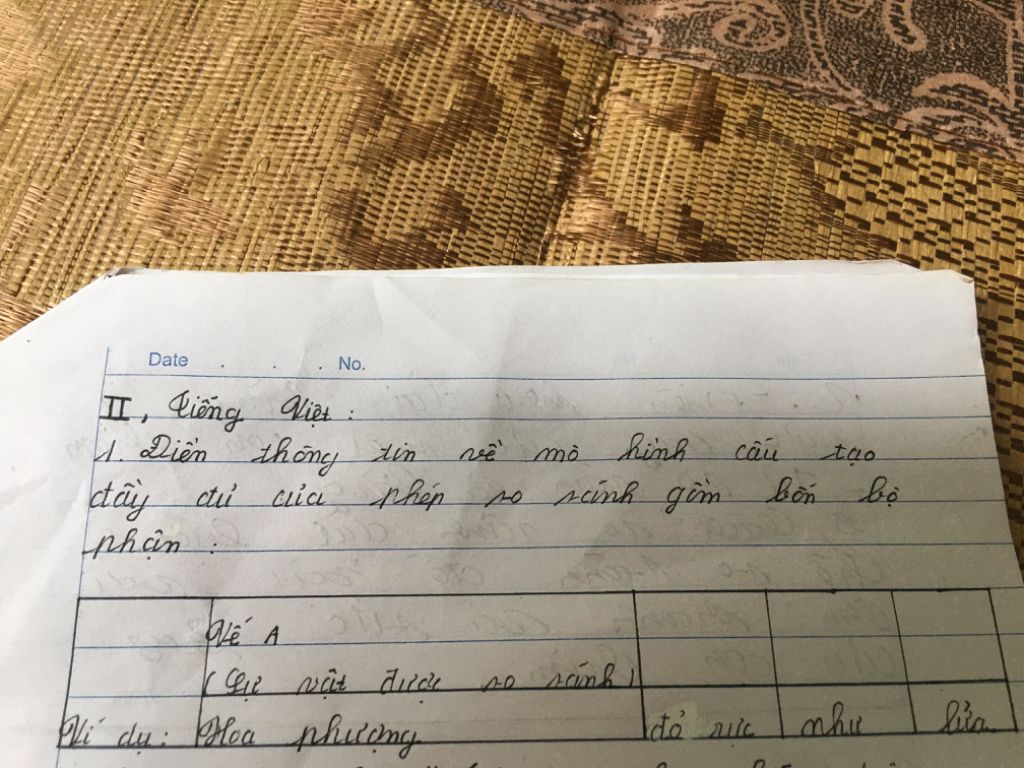 Date . . . No.
II, Tiếng Việt :
1. Điền thông tin về mô hình cấu tạo
đầy đủ của phép so sánh gồm bốn bộ
phận :
Vế A
(Sự vật được so sánh)
Ví dụ: Hoa phượng đỏ rực như lửa